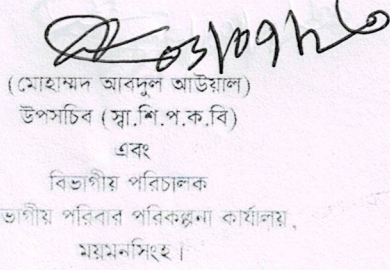 (মোহাম্মদ আবদুল আউয়াল)
উপসচিব (স্বা.শি.প.ক.বি)
এবং
বিভাগীয় পরিচালক
ভাগীয় পরিবার পরিকল্পনা কার্যালয়,
ময়মনসিংহ।